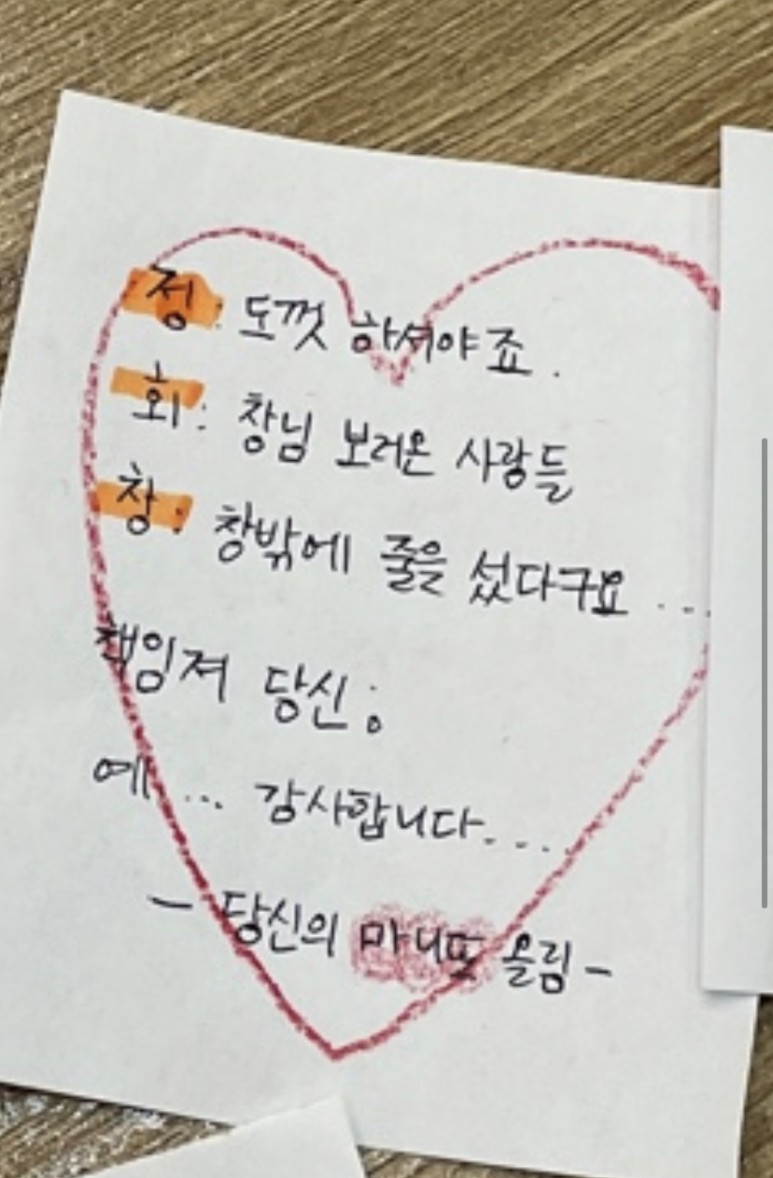 정: 도껏 하셔야죠.
회: 창님 보러온 사람들
창: 창밖에 줄을 섰다구요...
책임져 당신;
예... 감사합니다....
- 당신의 마니또 올림 -